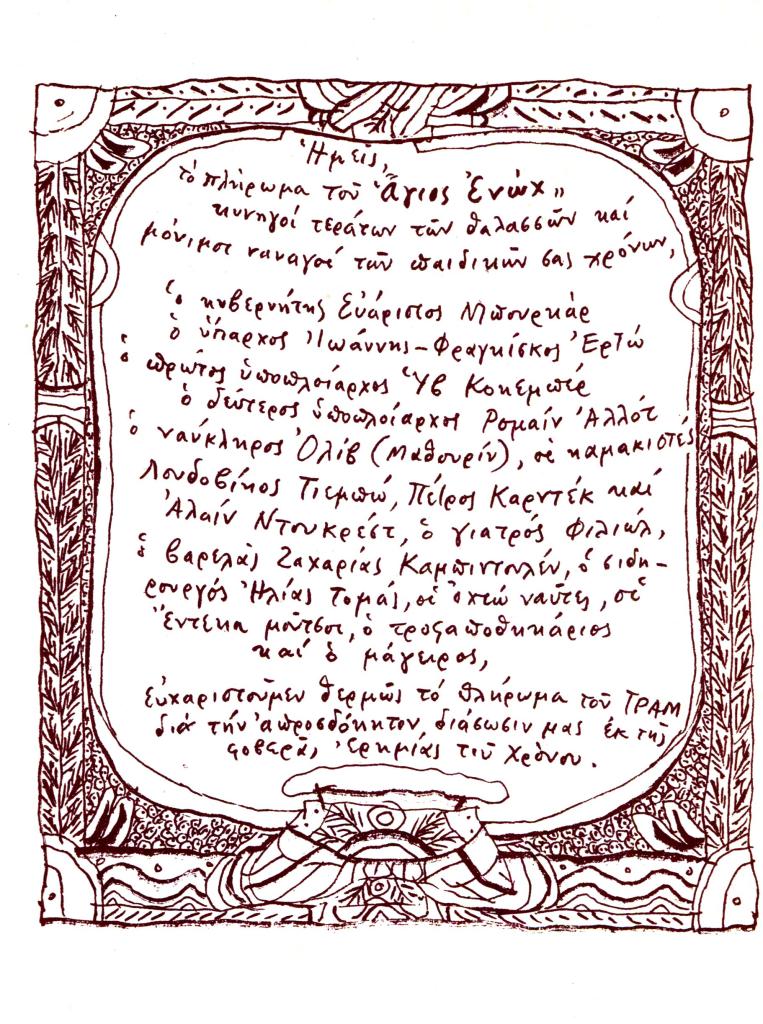 Ἡμεῖς,
τὸ πλήρωμα τοῦ "Ἅγιος Ἐνώχ"
κυνηγοί τεράτων τῶν θαλασσῶν καί
μόνιμοι ναυαγοί τῶν παιδικῶν σας χρόνων,
ὁ κυβερνήτης Εὐάριστος Μπουρκάρ
ὁ ὕπαρχος Ἰωάννης-Φραγκίσκος Ἐρτώ
ὁ πρῶτος ὑποπλοίαρχος Ὕβ Κοκεμπέρ
ὁ δεύτερος ὑποπλοίαρχος Ρομαίν Ἀλλότ
ὁ ναύκληρος Ὀλίβ (Μαθουρίν), οἱ καμακιστές
Λουδοβίκος Τιεμπώ, Πέτρος Καρντέκ καί
Ἀλαίν Ντουκρέστ, ὁ γιατρός Φιλιώλ,
ὁ βαρελάς Ζαχαρίας Καμπιντουλέν, ὁ σιδη-
ρουργός Ἠλίας Τομάς, οἱ ὀχτώ ναῦτες, οἱ
ἕντεκα μοῦτσοι, ὁ τροφαποθηκάριος
καί ὁ μάγειρος,
εὐχαριστοῦμεν θερμῶς τό πλήρωμα τοῦ ΤΡΑΜ
διά τήν ἀπροσδόκητον διάσωσίν μας ἐκ τῆς
φοβερᾶς ἐρημίας τοῦ χρόνου.